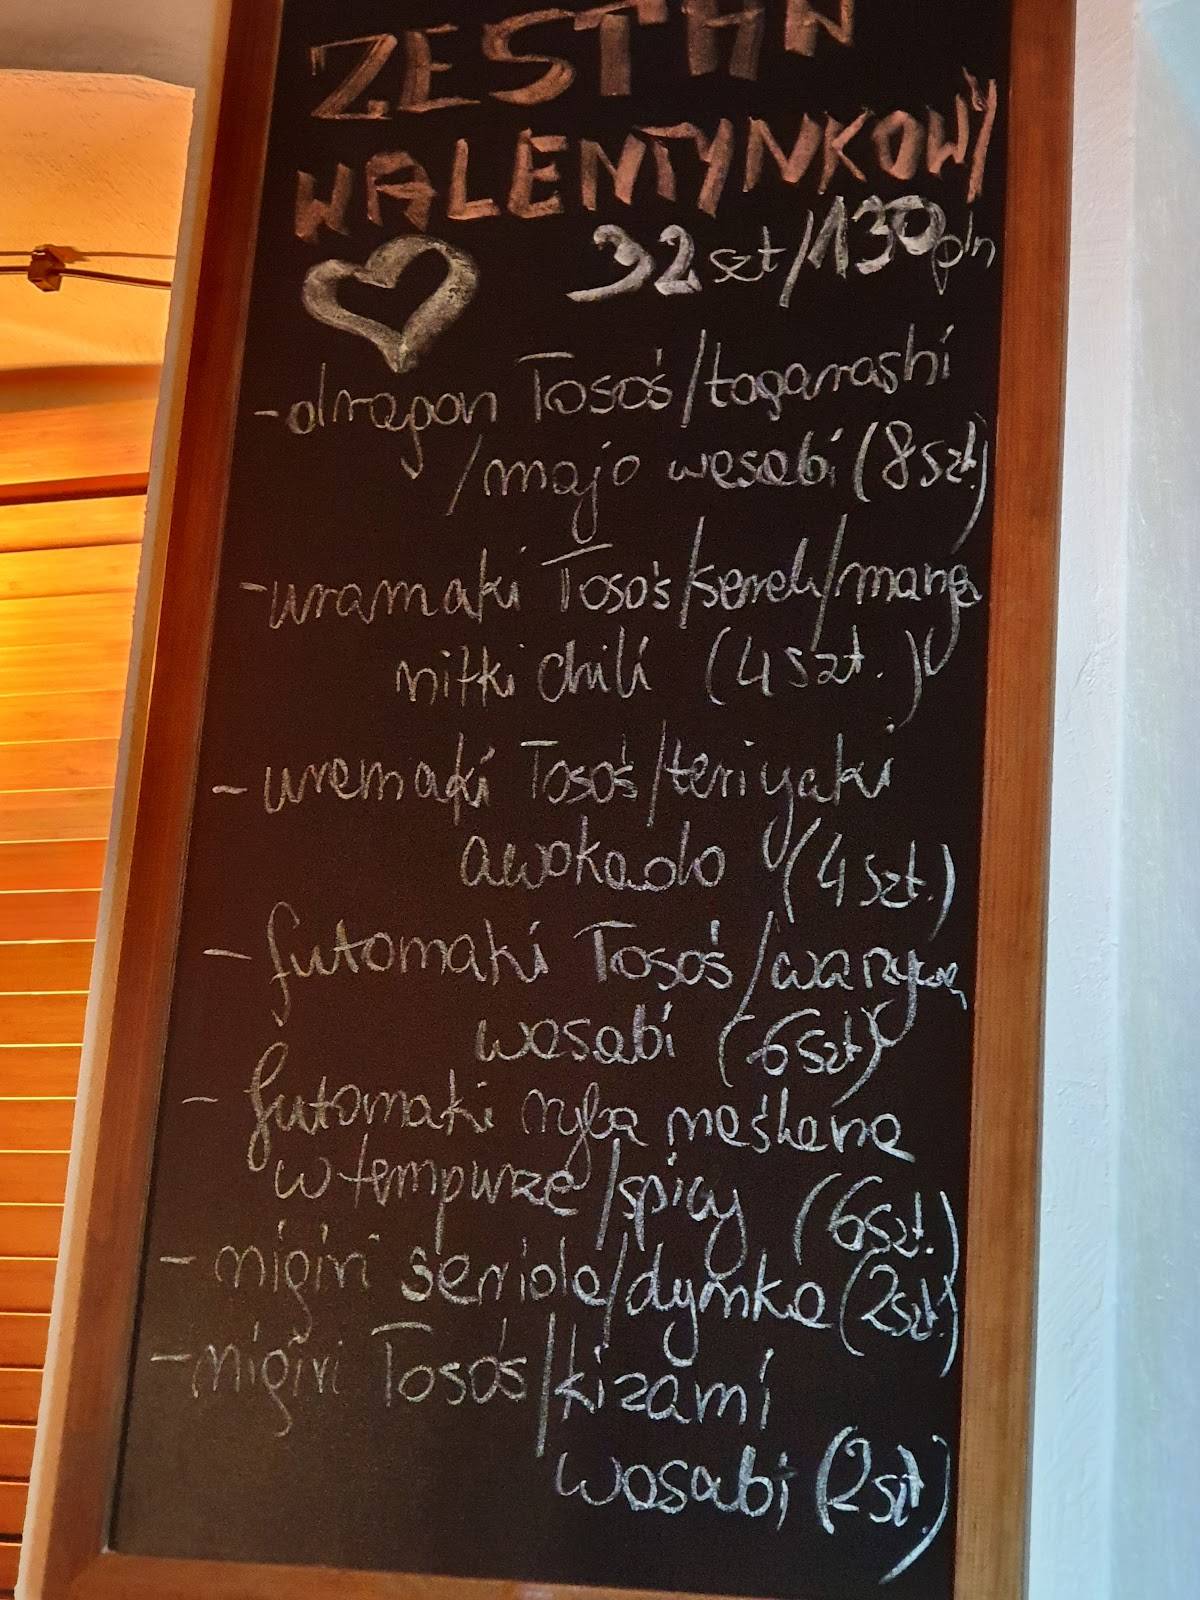 ZESTAW
WALENTYNKOWY
32 szt/130 pln
-dragon Łosoś/togarashi
/majo wasabi (8szt.)
-uramaki Łosoś/serek/mango
nitki chili (4szt.)
-uramaki Łosoś/teriyaki
awokado (4szt.)
-futomaki Łosoś/warzywa
wasabi (6szt)
-futomaki ryba maślana
w tempurze/spicy (6szt.)
-nigiri seriola/dymka (2szt.)
-nigiri Łosoś/kizami
wasabi (2szt.)